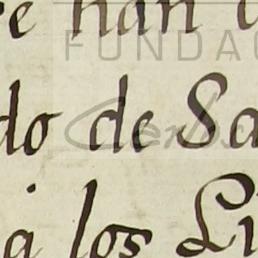 han
FUNDAC
do de Sa
Cervs
a los Li